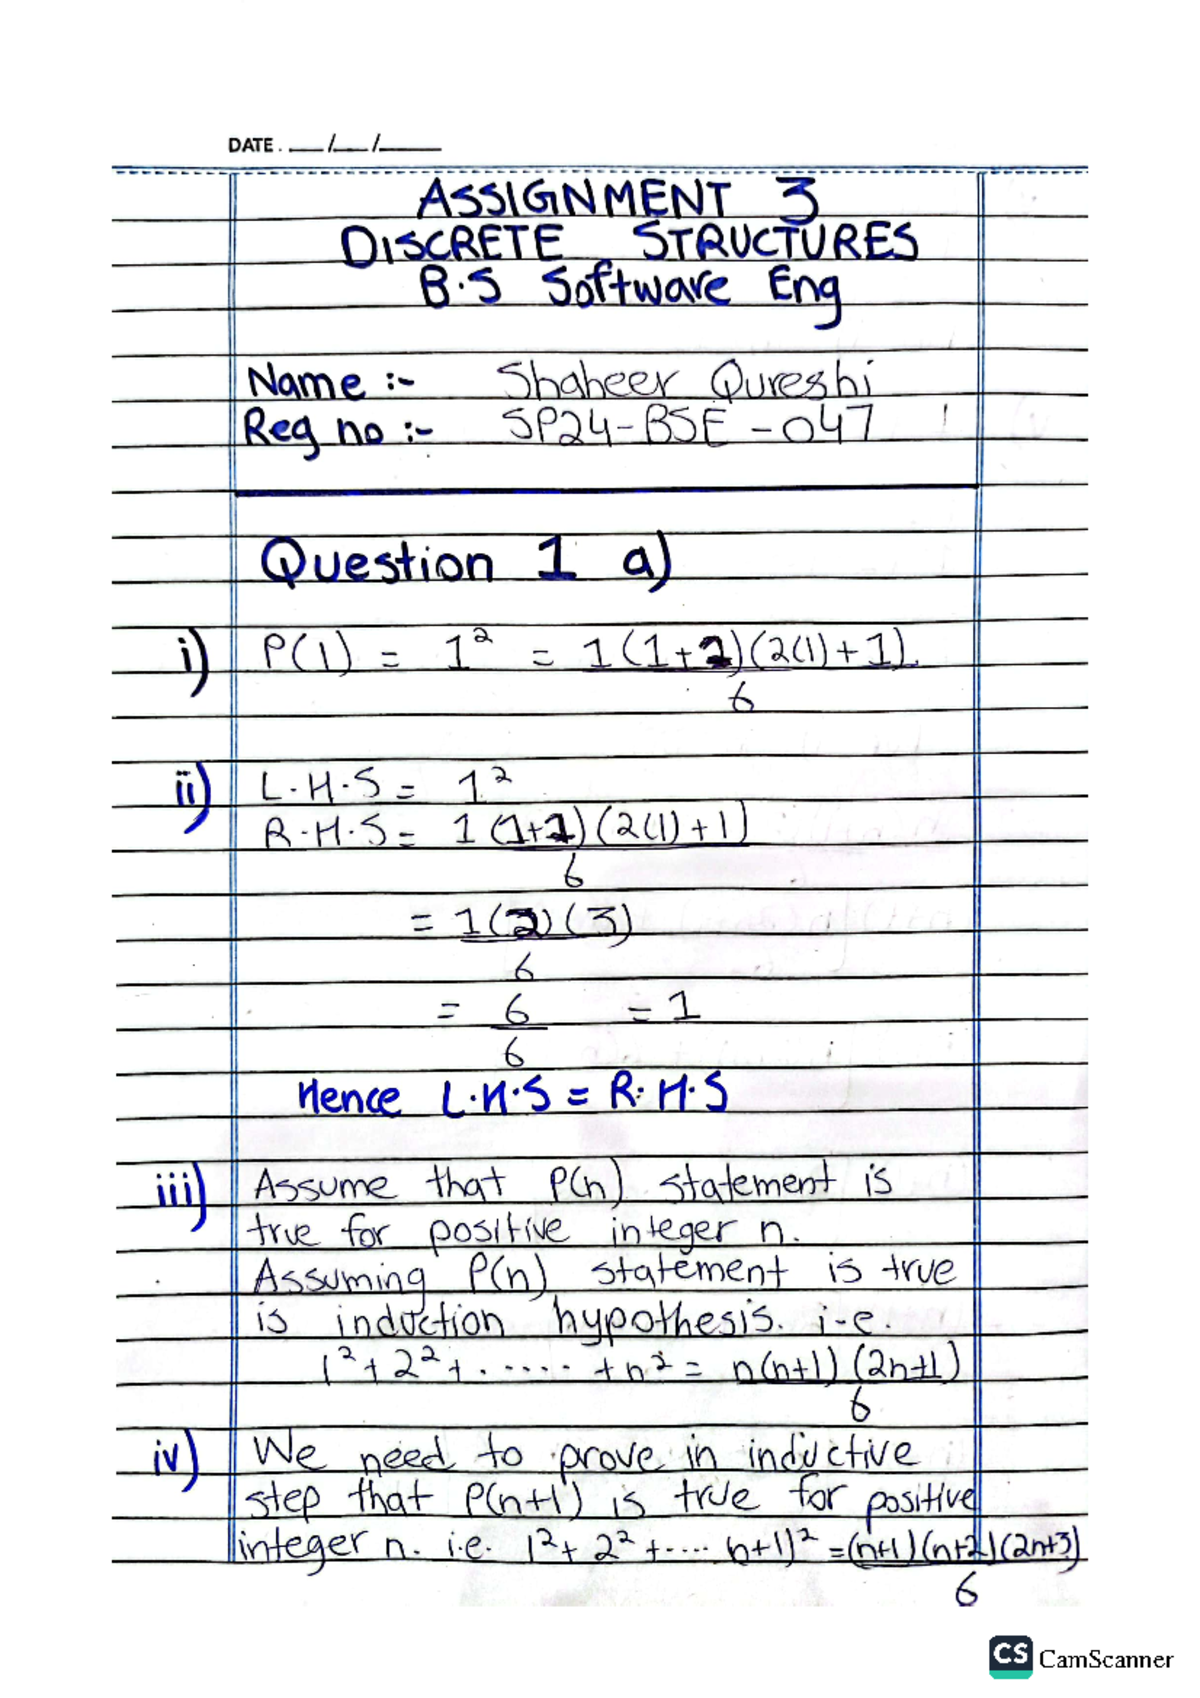 DATE . ___/___/_____
ASSIGNMENT 3
DISCRETE STRUCTURES
B.S Software Eng
Name :- Shaheer Qureshi
Reg no :- SP24-BSE-047
Question 1 a)
i) P(1) = 1² = 1(1+1)(2(1)+1)
6
ii) L.H.S = 1²
R.H.S = 1(1+1)(2(1)+1)
6
= 1(2)(3)
6
= 6 = 1
6
Hence L.H.S = R.H.S
iii) Assume that P(n) statement is
true for positive integer n.
Assuming P(n) statement is true
is induction hypothesis. i-e.
1²+2²+......+n² = n(n+1)(2n+1)
6
iv) We need to prove in inductive
step that P(n+1) is true for positive
integer n. i.e. 1²+2²+.... (n+1)² = (n+1)(n+2)(2n+3)
6
CS CamScanner